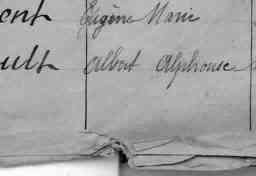 ent Eugène Marie
ult Albert Alphonse